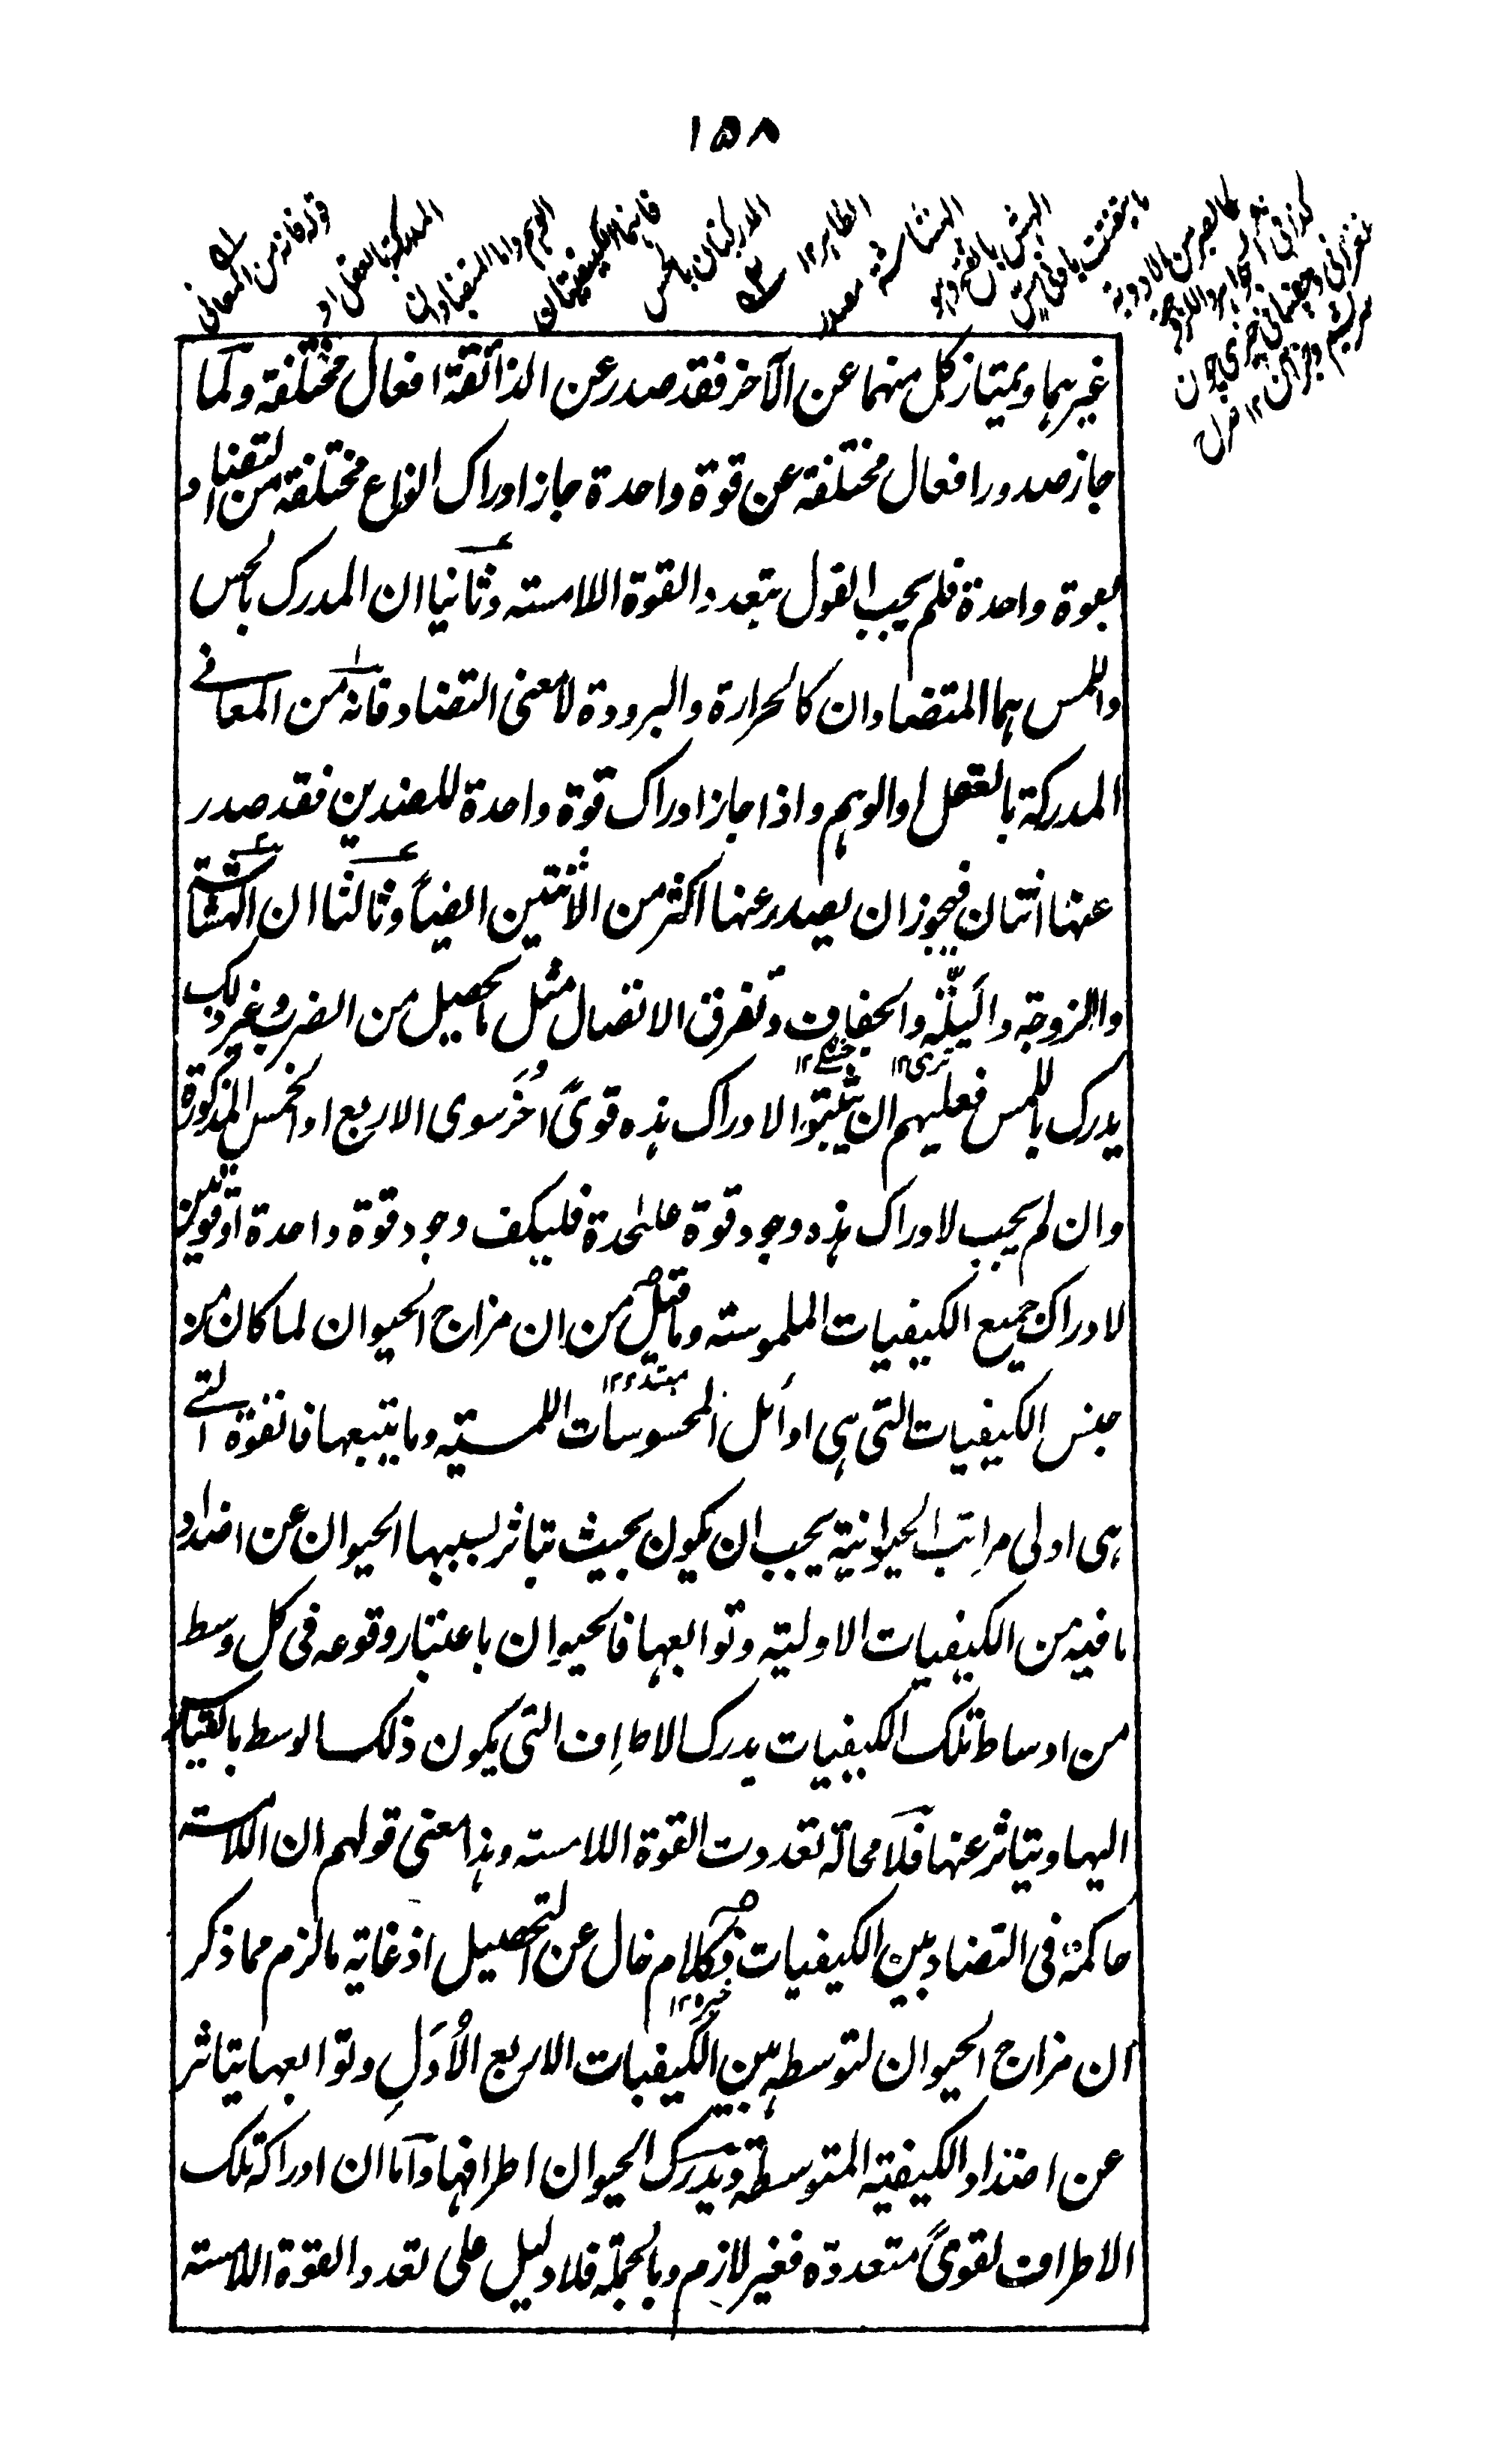 ١٥٨
غيرهما ويمتاز كل منهما عن الآخر فقد صدر عن الذائقة افعال مختلفة وكما
جاز صدور افعال مختلفة عن قوة واحدة جاز ادراك انواع مختلفة من التضاد
بقوة واحدة فلم يجب القول بتعدد القوة اللامسته وثانيا ان المدرك بالحس
واللمس هما المتضادان كالحرارة والبرودة لا معنى التضاد فانه من المعاني
المدركة بالعقل او الوهم واذا جاز ادراك قوة واحدة للضدين فقد صدر
عنها اثنان فيجوز ان يصدر عنها اكثر من الاثنين ايضاً وثالثا ان الهشاشة
واللزوجة والبِلّة والجفاف وتفرق الاتصال مثل ما يحصل من الضرب وغير ذلك
ترى١٢ خشكے١٢
يدرك باللمس فعليهم ان يثبتوا لادراك هذه قوىً اُخَر سوى الاربع او الخمس المذكورة
وان لم يجب لادراك هذه وجود قوة علىٰحدة فليكف وجود قوة واحدة او قوتين
لادراك جميع الكيفيات الملموسته وما قيل من ان مزاج الحيوان لما كان من
مبتدء١٢
جنس الكيفيات التي هي اوائل المحسوسات اللمسية وما يتبعها فالقوة التے
هي اولى مراتب الحيوانية يجب ان يكون بحيث يتاثر بسببها الحيوان عن اضداد
ما فيه من الكيفيات الاولية وتوابعها فالحيوان باعتبار وقوعه في كل وسط
من اوساط تلك الكيفيات يدرك الاطراف التي يكون ذلك الوسط بالقياس
اليها ويتاثر عنها فلا محالة تعددت القوة اللامسته وهذا معنى قولهم ان اللامسته
حاكمة في التضاد بين الكيفيات فكلام خال عن التحصيل اذ غاية ما لزم مما ذكر
خبر١٢
ان مزاج الحيوان لتوسطه بين الكيفيات الاربع الاُوَلِ وتوابعها يتاثر
عن اضداد الكيفية المتوسطة ويدرك الحيوان اطرافها واما ان ادراكه تلك
الاطراف لقوىً متعددة فغير لازم وبالجملة فلا دليل على تعدد القوة اللامسته